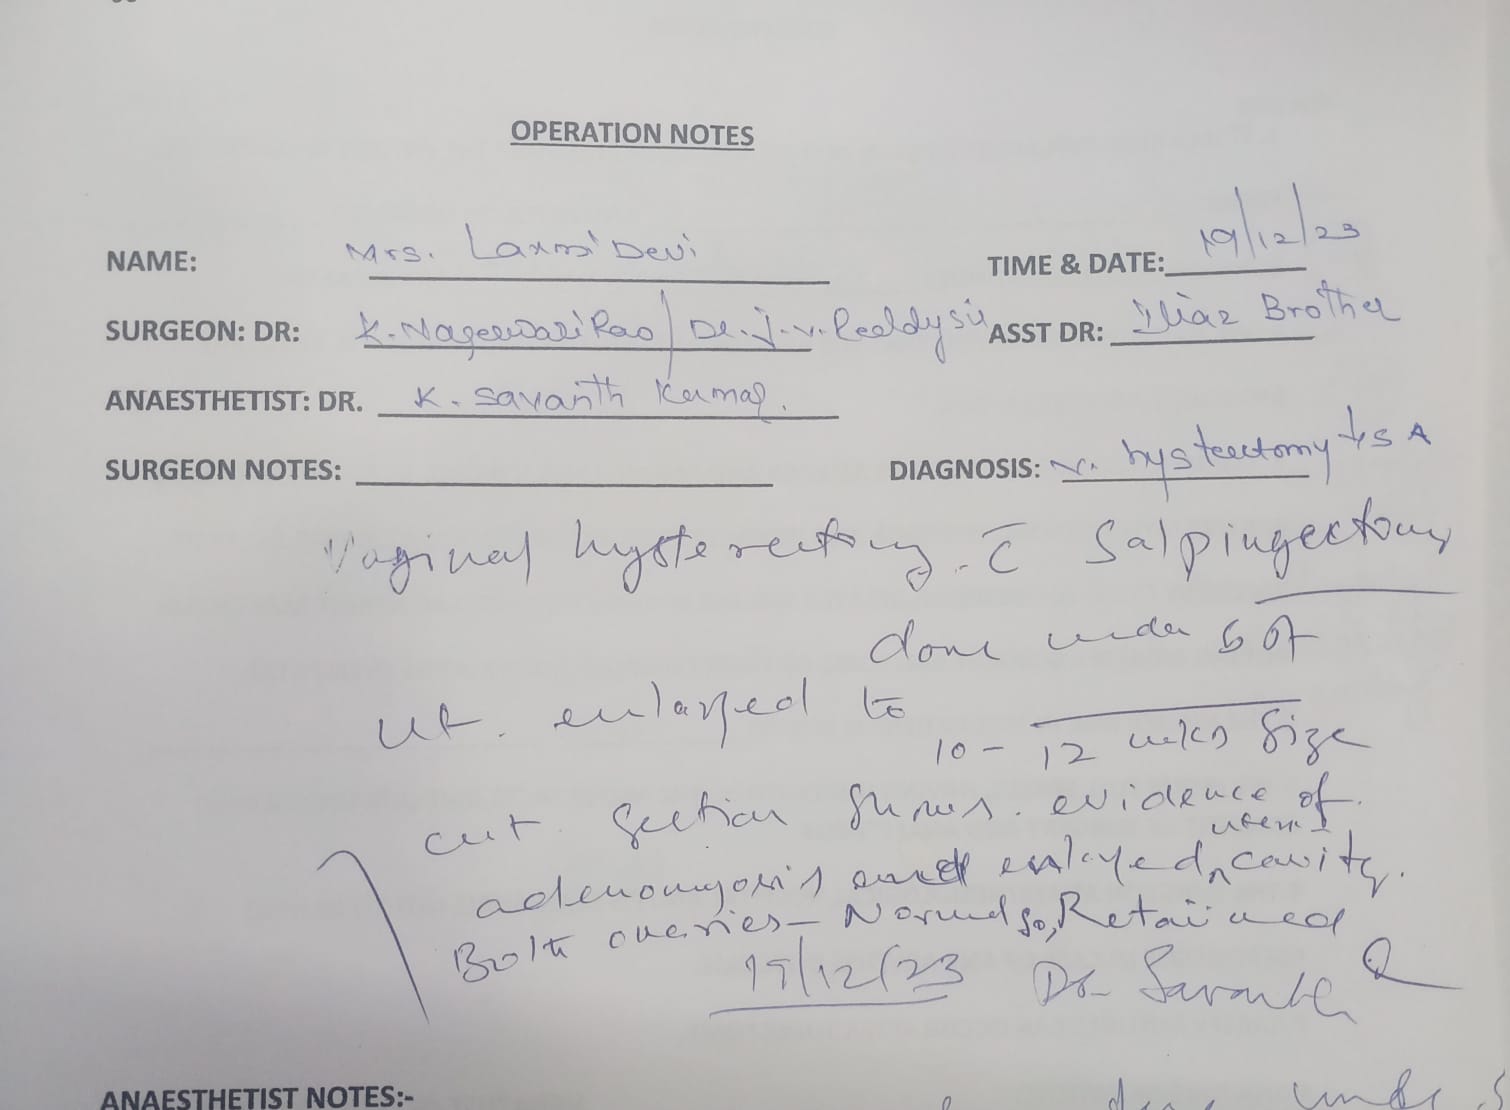 OPERATION NOTES
NAME: Mrs. Laxmi Devi TIME & DATE: 19/12/23
SURGEON: DR: K. Nageswari Rao / Dr. J. V. Reddy sir ASST DR: Iliaz Brother
ANAESTHETIST: DR. K. Savanth Kumar.
SURGEON NOTES: DIAGNOSIS: V. hysterectomy
Vaginal hysterectomy. c̄ Salpingectomy
done under
ut. enlarged to
10-12 weeks size
cut section shows. evidence of
adenomyosis and enlarged uterine cavity.
Both ovaries - Normal so, Retained
19/12/23 Dr.
ANAESTHETIST NOTES:-